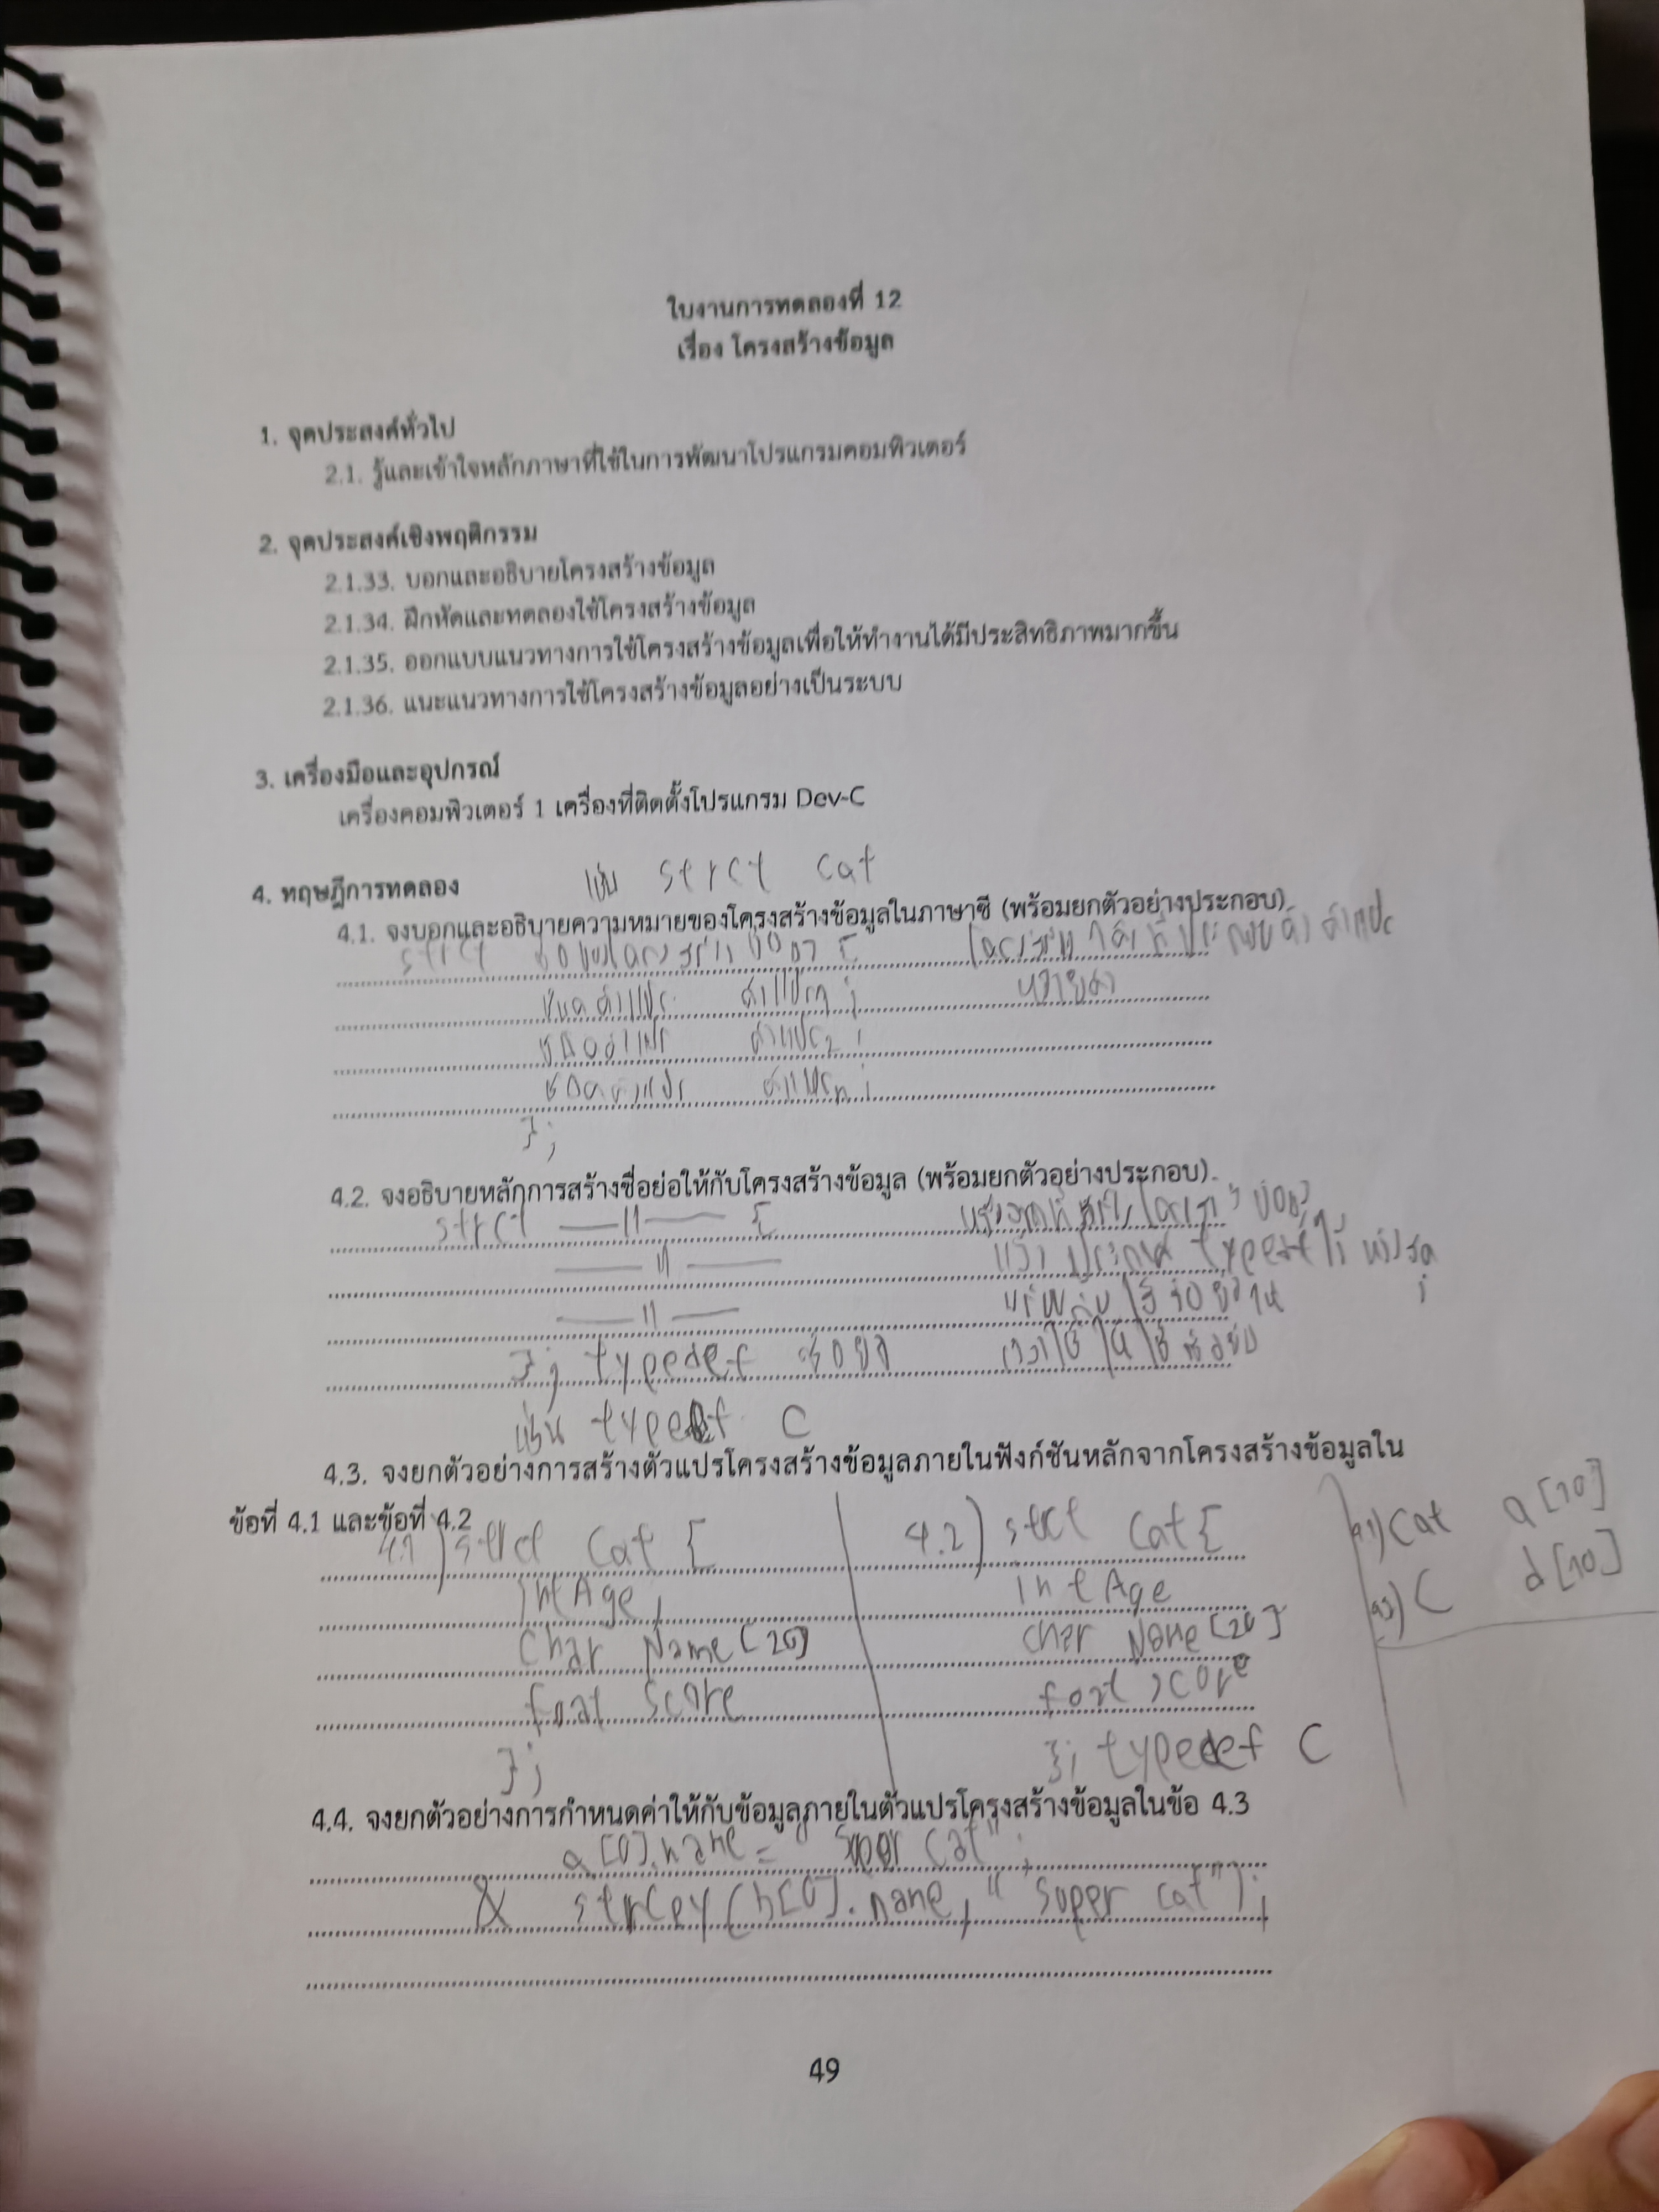 ใบงานการทดลองที่ 12
เรื่อง โครงสร้างข้อมูล
1. จุดประสงค์ทั่วไป
2.1. รู้และเข้าใจหลักภาษาที่ใช้ในการพัฒนาโปรแกรมคอมพิวเตอร์
2. จุดประสงค์เชิงพฤติกรรม
2.1.33. บอกและอธิบายโครงสร้างข้อมูล
2.1.34. ฝึกหัดและทดลองใช้โครงสร้างข้อมูล
2.1.35. ออกแบบแนวทางการใช้โครงสร้างข้อมูลเพื่อให้ทำงานได้มีประสิทธิภาพมากขึ้น
2.1.36. แนะแนวทางการใช้โครงสร้างข้อมูลอย่างเป็นระบบ
3. เครื่องมือและอุปกรณ์
เครื่องคอมพิวเตอร์ 1 เครื่องที่ติดตั้งโปรแกรม Dev-C
4. ทฤษฎีการทดลอง
เช่น strct cat
4.1. จงบอกและอธิบายความหมายของโครงสร้างข้อมูลในภาษาซี (พร้อมยกตัวอย่างประกอบ)
strct {
ชนิดตัวแปร ตัวแปร1;
ชนิดตัวแปร ตัวแปร2;
ชนิดตัวแปร ตัวแปรn;
};
4.2. จงอธิบายหลักการสร้างชื่อย่อให้กับโครงสร้างข้อมูล (พร้อมยกตัวอย่างประกอบ)
strct —11— {
—11—
—11—
}; typedef ชื่อย่อ
เช่น typedef C
4.3. จงยกตัวอย่างการสร้างตัวแปรโครงสร้างข้อมูลภายในฟังก์ชันหลักจากโครงสร้างข้อมูลใน
ข้อที่ 4.1 และข้อที่ 4.2
4.1) strct Cat { 4.2) strct Cat { Cat a[10]
int Age, int Age C d[10]
Char Name[20] char Name[20]
foat Score foat score
}; }; typedef C
4.4. จงยกตัวอย่างการกำหนดค่าให้กับข้อมูลภายในตัวแปรโครงสร้างข้อมูลในข้อ 4.3
a[0].name = "Super Cat";
& strcpy(b[0].name, "Super cat");
49